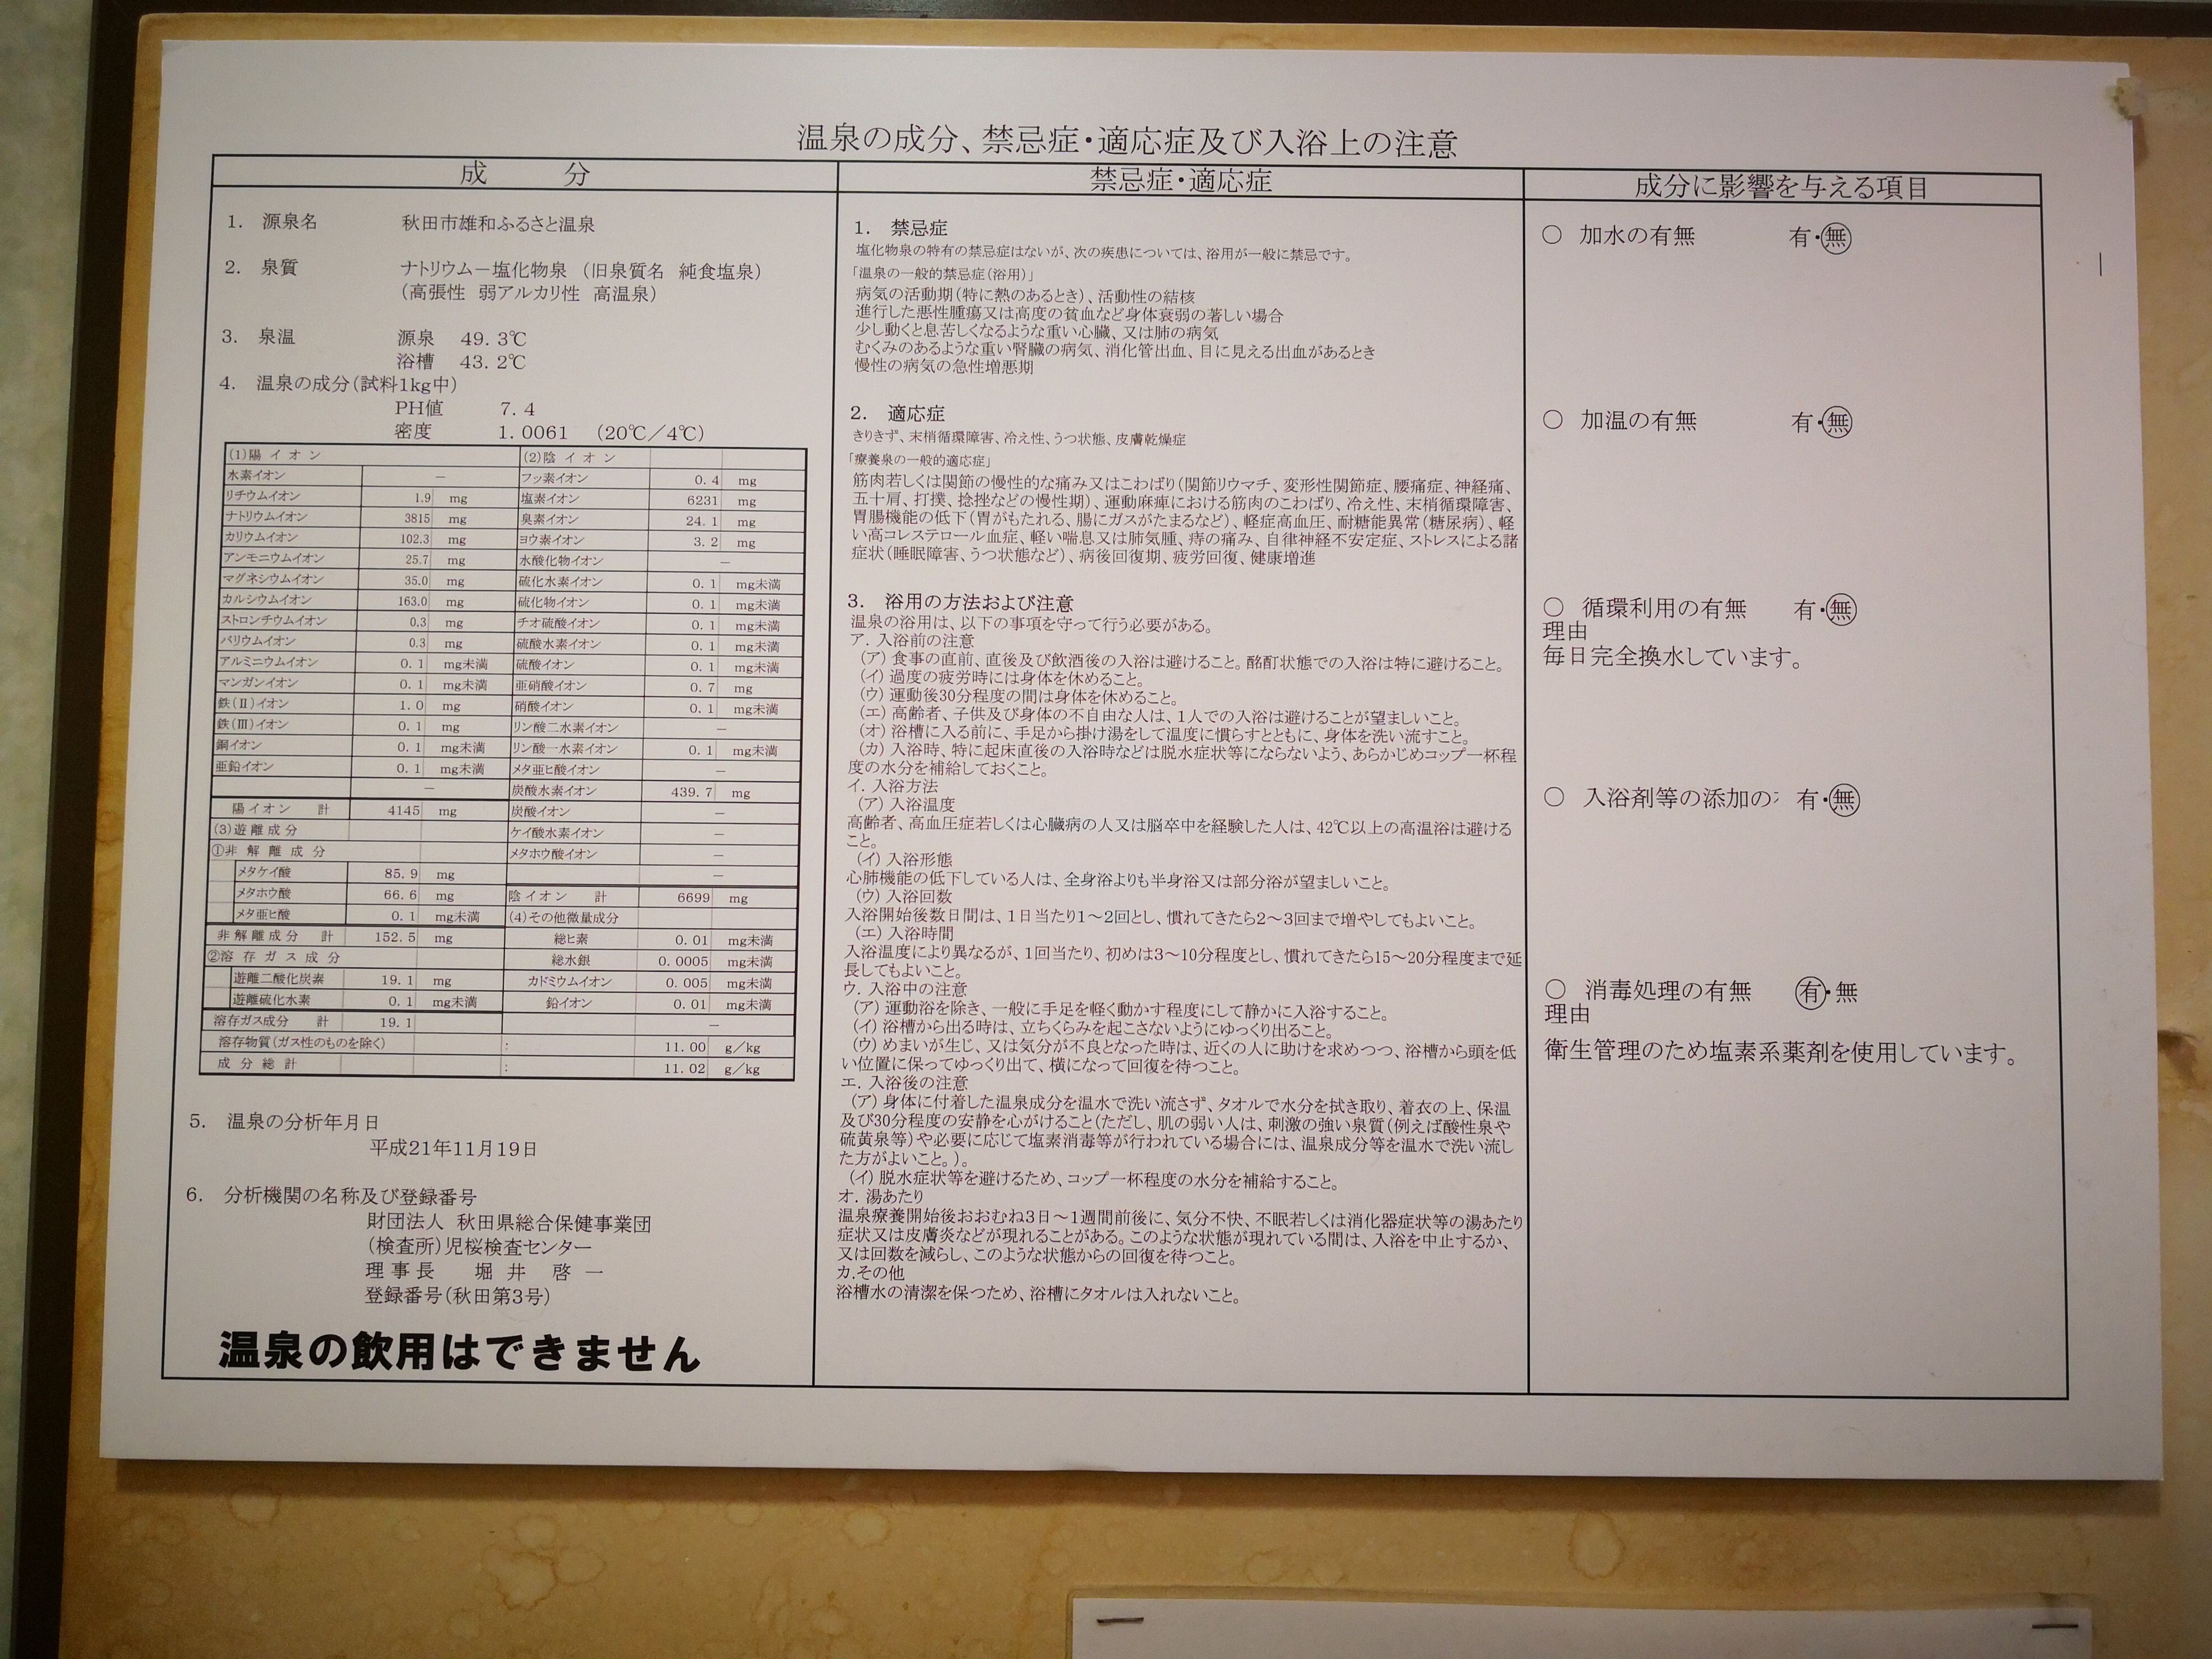 温泉の成分、禁忌症・適応症及び入浴上の注意
成　分
1.　源泉名　秋田市雄和ふるさと温泉
2.　泉質　ナトリウム－塩化物泉　（旧泉質名　純食塩泉）
（高張性　弱アルカリ性　高温泉）
3.　泉温　源泉　49.3℃
浴槽　43.2℃
4.　温泉の成分（試料1kg中）
PH値　7.4
密度　1.0061　（20℃／4℃）
(1)陽イオン
水素イオン　－
リチウムイオン　1.9　mg
ナトリウムイオン　3815　mg
カリウムイオン　102.3　mg
アンモニウムイオン　25.7　mg
マグネシウムイオン　35.0　mg
カルシウムイオン　163.0　mg
ストロンチウムイオン　0.3　mg
バリウムイオン　0.3　mg
アルミニウムイオン　0.1　mg未満
マンガンイオン　0.1　mg未満
鉄(Ⅱ)イオン　1.0　mg
鉄(Ⅲ)イオン　0.1　mg
銅イオン　0.1　mg未満
亜鉛イオン　0.1　mg未満
－
陽イオン　計　4145　mg
(3)遊離成分
①非解離成分
メタケイ酸　85.9　mg
メタホウ酸　66.6　mg
メタ亜ヒ酸　0.1　mg未満
非解離成分　計　152.5　mg
②溶存ガス成分
遊離二酸化炭素　19.1　mg
遊離硫化水素　0.1　mg未満
溶存ガス成分　計　19.1
(2)陰イオン
フッ素イオン　0.4　mg
塩素イオン　6231　mg
臭素イオン　24.1　mg
ヨウ素イオン　3.2　mg
水酸化物イオン　－
硫化水素イオン　0.1　mg未満
硫化物イオン　0.1　mg未満
チオ硫酸イオン　0.1　mg未満
硫酸水素イオン　0.1　mg未満
硫酸イオン　0.1　mg未満
亜硝酸イオン　0.7　mg
硝酸イオン　0.1　mg未満
リン酸二水素イオン　－
リン酸一水素イオン　0.1　mg未満
メタ亜ヒ酸イオン　－
炭酸水素イオン　439.7　mg
炭酸イオン　－
ケイ酸水素イオン　－
メタホウ酸イオン　－
－
陰イオン　計　6699　mg
(4)その他微量成分
総ヒ素　0.01　mg未満
総水銀　0.0005　mg未満
カドミウムイオン　0.005　mg未満
鉛イオン　0.01　mg未満
－
溶存物質（ガス性のものを除く）　:　11.00　g／kg
成分総計　:　11.02　g／kg
5.　温泉の分析年月日
平成21年11月19日
6.　分析機関の名称及び登録番号
財団法人　秋田県総合保健事業団
（検査所）児桜検査センター
理事長　堀井　啓一
登録番号（秋田第3号）
温泉の飲用はできません
禁忌症・適応症
1.　禁忌症
塩化物泉の特有の禁忌症はないが、次の疾患については、浴用が一般に禁忌です。
「温泉の一般的禁忌症（浴用）」
病気の活動期（特に熱のあるとき）、活動性の結核
進行した悪性腫瘍又は高度の貧血など身体衰弱の著しい場合
少し動くと息苦しくなるような重い心臓、又は肺の病気
むくみのあるような重い腎臓の病気、消化管出血、目に見える出血があるとき
慢性の病気の急性増悪期
2.　適応症
きりきず、末梢循環障害、冷え性、うつ状態、皮膚乾燥症
「療養泉の一般的適応症」
筋肉若しくは関節の慢性的な痛み又はこわばり（関節リウマチ、変形性関節症、腰痛症、神経痛、
五十肩、打撲、捻挫などの慢性期）、運動麻痺における筋肉のこわばり、冷え性、末梢循環障害、
胃腸機能の低下（胃がもたれる、腸にガスがたまるなど）、軽症高血圧、耐糖能異常（糖尿病）、軽
い高コレステロール血症、軽い喘息又は肺気腫、痔の痛み、自律神経不安定症、ストレスによる諸
症状（睡眠障害、うつ状態など）、病後回復期、疲労回復、健康増進
3.　浴用の方法および注意
温泉の浴用は、以下の事項を守って行う必要がある。
ア．入浴前の注意
（ア）食事の直前、直後及び飲酒後の入浴は避けること。酩酊状態での入浴は特に避けること。
（イ）過度の疲労時には身体を休めること。
（ウ）運動後30分程度の間は身体を休めること。
（エ）高齢者、子供及び身体の不自由な人は、1人での入浴は避けることが望ましいこと。
（オ）浴槽に入る前に、手足から掛け湯をして温度に慣らすとともに、身体を洗い流すこと。
（カ）入浴時、特に起床直後の入浴時などは脱水症状等にならないよう、あらかじめコップ一杯程
度の水分を補給しておくこと。
イ．入浴方法
（ア）入浴温度
高齢者、高血圧症若しくは心臓病の人又は脳卒中を経験した人は、42℃以上の高温浴は避ける
こと。
（イ）入浴形態
心肺機能の低下している人は、全身浴よりも半身浴又は部分浴が望ましいこと。
（ウ）入浴回数
入浴開始後数日間は、1日当たり1～2回とし、慣れてきたら2～3回まで増やしてもよいこと。
（エ）入浴時間
入浴温度により異なるが、1回当たり、初めは3～10分程度とし、慣れてきたら15～20分程度まで延
長してもよいこと。
ウ．入浴中の注意
（ア）運動浴を除き、一般に手足を軽く動かす程度にして静かに入浴すること。
（イ）浴槽から出る時は、立ちくらみを起こさないようにゆっくり出ること。
（ウ）めまいが生じ、又は気分が不良となった時は、近くの人に助けを求めつつ、浴槽から頭を低
い位置に保ってゆっくり出て、横になって回復を待つこと。
エ．入浴後の注意
（ア）身体に付着した温泉成分を温水で洗い流さず、タオルで水分を拭き取り、着衣の上、保温
及び30分程度の安静を心がけること（ただし、肌の弱い人は、刺激の強い泉質（例えば酸性泉や
硫黄泉等）や必要に応じて塩素消毒等が行われている場合には、温泉成分等を温水で洗い流し
た方がよいこと。）。
（イ）脱水症状等を避けるため、コップ一杯程度の水分を補給すること。
オ．湯あたり
温泉療養開始後おおむね3日～1週間前後に、気分不快、不眠若しくは消化器症状等の湯あたり
症状又は皮膚炎などが現れることがある。このような状態が現れている間は、入浴を中止するか、
又は回数を減らし、このような状態からの回復を待つこと。
カ．その他
浴槽水の清潔を保つため、浴槽にタオルは入れないこと。
成分に影響を与える項目
○　加水の有無　有・無
○　加温の有無　有・無
○　循環利用の有無　有・無
理由
毎日完全換水しています。
○　入浴剤等の添加の　有・無
○　消毒処理の有無　有・無
理由
衛生管理のため塩素系薬剤を使用しています。